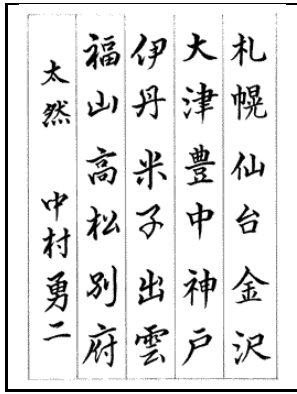 札幌仙台金沢
大津豊中神戸
伊丹米子出雲
福山高松別府
太然 中村勇二